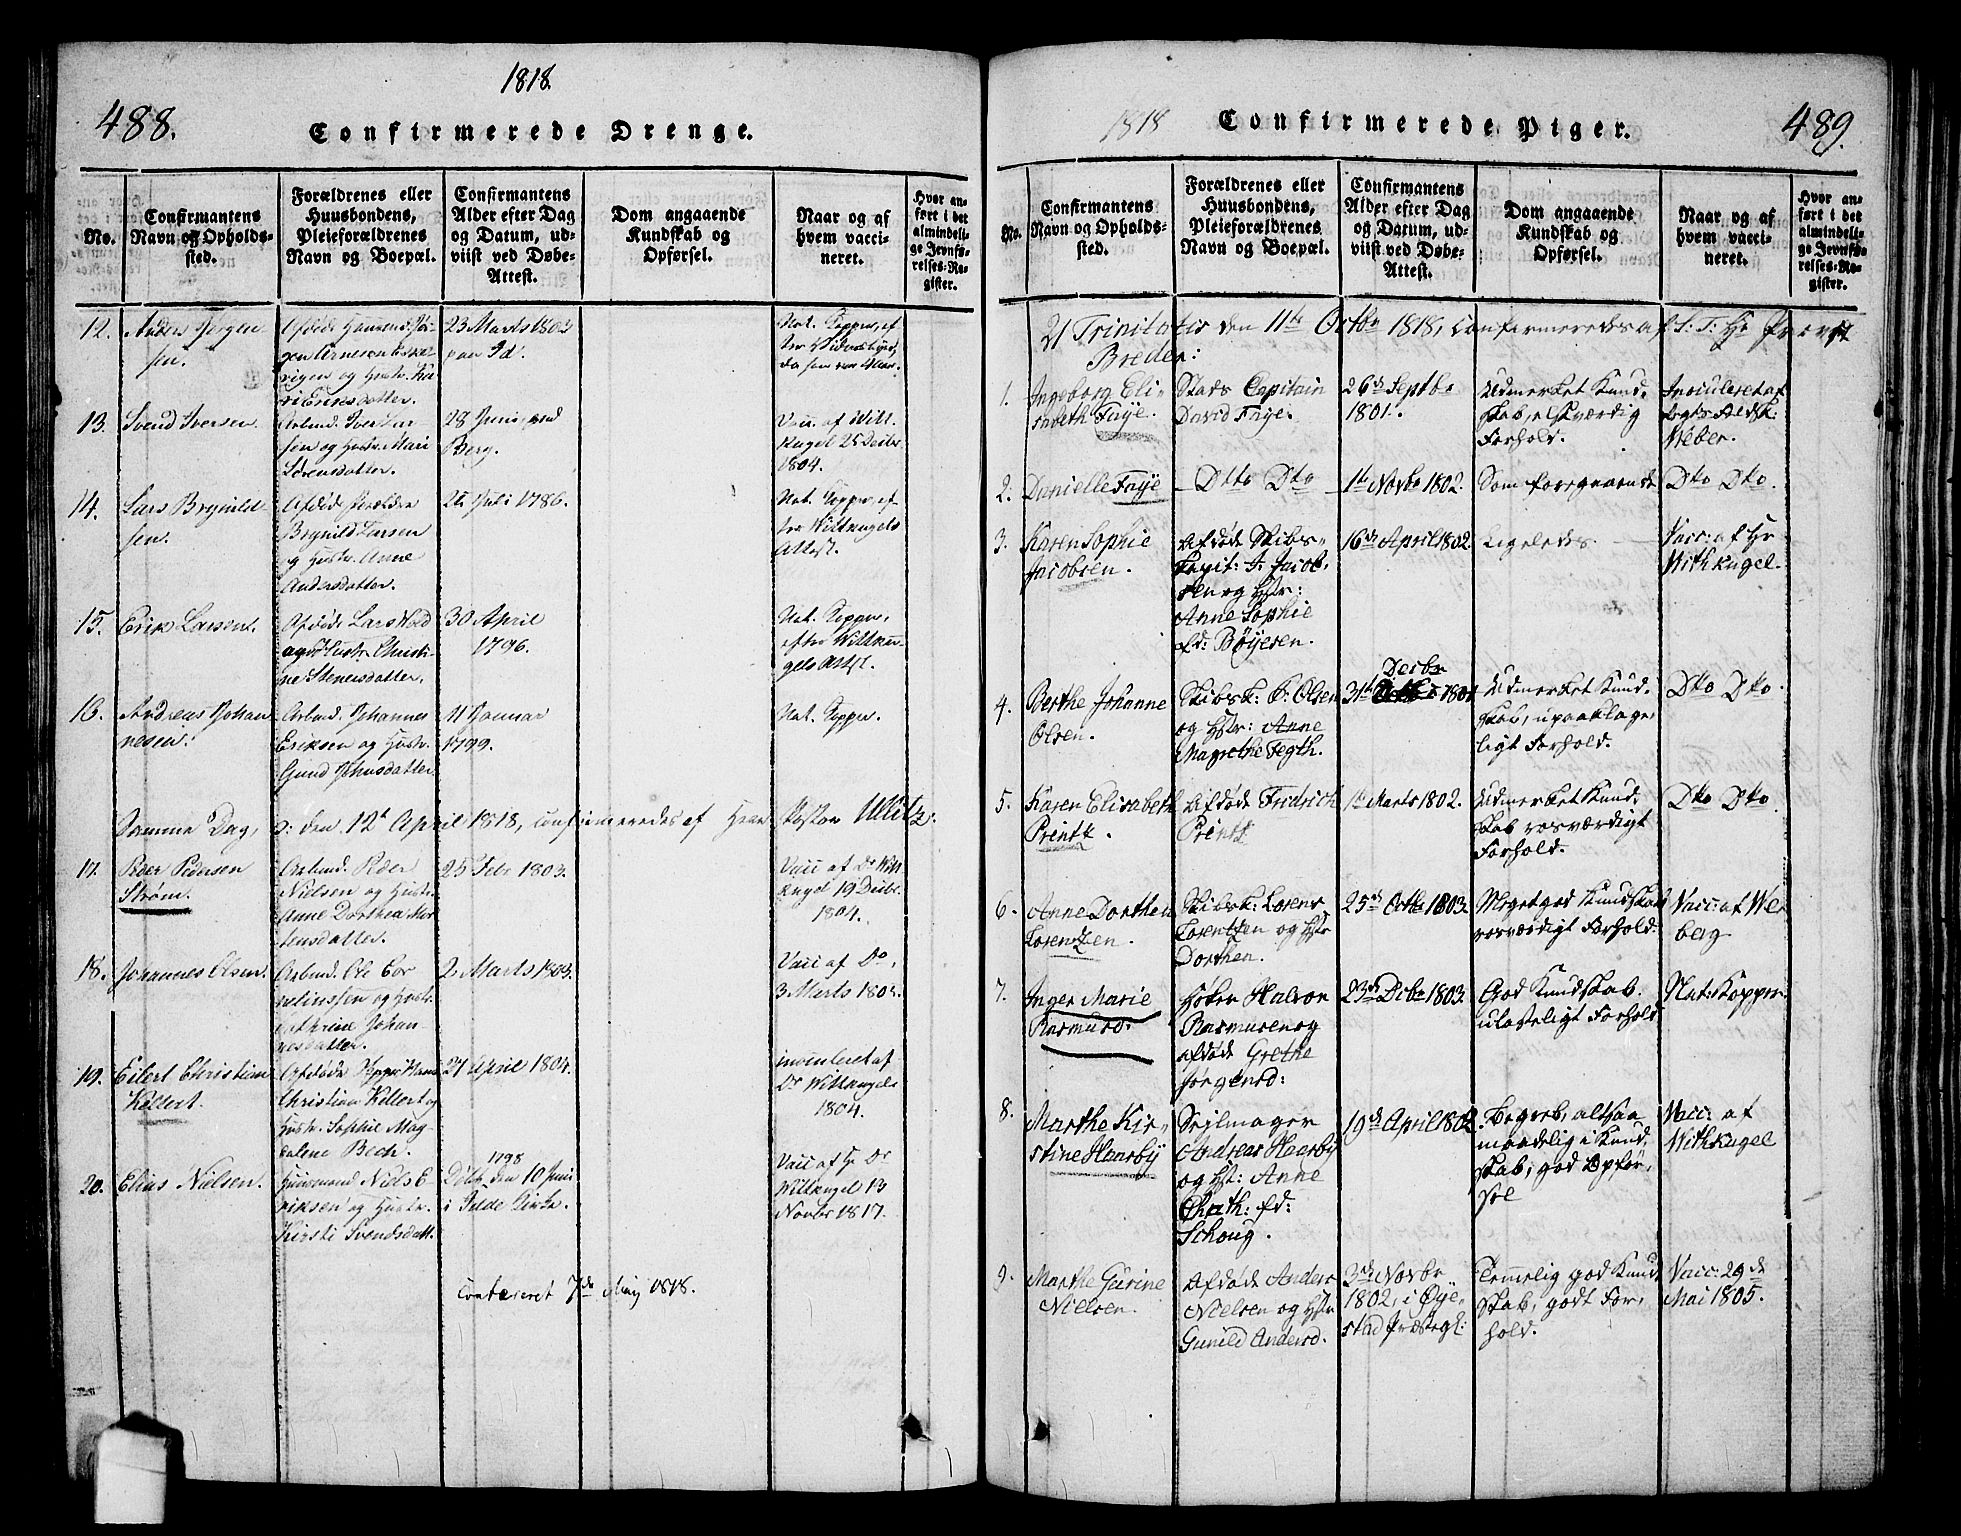 1818.
488.
Confirmerede Drenge.
No.
Confirmantens
Navn og Opholds-
sted.
Forældrenes eller
Huusbondens,
Pleieforældrenes
Navn og Boepæl.
Confirmantens
Alder efter Dag
og Datum, ud-
viist ved Døbe-
Attest.
Dom angaaende
Kundskab og
Opførsel.
Naar og af
hvem vacci-
neret.
Hvor an-
ført i det
almindeli-
ge Jevnfø-
relses-Re-
gister.
12.
Anders Jørgen
sen.
Afdøde
gen Arnesen
og Hustr.
Ericksdatter.
23 Marts 1803
Nat. Kopper, ef
13.
Svend Iversen.
Arbmd. Iver Lar
sen og Hustr. Mari
Sørensdatter.
28 Juni
Berg.
Vacc. af Witt
kugel 25 Decbr
1804.
14.
Lars Brynild
sen.
Afdøde
Brynild Larsen
og Hustr. Anne
Andersdatter.
Juli 1786.
Nat. Kopper, ef
ter Wittkugels
Attest.
15.
Erik Larsen.
Afdøde Lars
og Hustr. Christi-
ne Stenersdatter.
30 April
1796.
Nat. Kopper,
efter Wittku-
gels Attst.
16.
Andreas Johan
nesen.
Arbmd. Johannes
Eriksen og Hustr.
Gund
11 Januar
1799.
Nat. Kopper.
Samme Dag, o: den 12t April 1818, confirmeredes af Herr Pastor Ullitz.
17.
Peder Pedersen
Strøm.
Arbmd. Peder
Nielsen og Hustr.
Anne Dorthea Mor
tensdatter.
25 Febr 1803.
Vacc af Dr Witt
kugel 19 Decbr.
1804.
18.
Johannes Olsen.
Arbmd. Ole Cor
neliussen og Hustr.
Cathrine Johan-
nesdatter.
2 Marts 1803.
Vacc af Do,
3 Marts 1803.
19.
Eilert Christian
Kellert.
Afdøde
Christian Kellert og
Hustr. Sophie Mag
dalene Bech.
27 April 1804.
af
Dr Wittkugels
1804.
20.
Elias Nielsen.
Huusmand Niels E
riksen og Hustr.
Kirsti Svendsdatt.
1798
Døbt den 10 Juni
i Kirke.
Vacc af H Dr
Wittkugel 13
Novbr 1817.
Confereret 7de Maij 1818.
1818
Confirmerede Piger.
489.
No.
Confirmantens
Navn og Opholds-
sted.
Forældrenes eller
Huusbondens,
Pleieforældrenes
Navn og Boepæl.
Confirmantens
Alder efter Dag
og Datum, ud-
viist ved Døbe-
Attest.
Dom angaaende
Kundskab og
Opførsel.
Naar og af
hvem vacci-
neret.
Hvor an-
ført i det
almindeli-
ge Jevnfø-
relses-Re-
gister.
21 Trinitatis den 11te Octbr 1818, confirmeredes af S: T: Hr Provst
Breder:
1.
Ingeborg Eli-
sabeth Faye.
Stads Capitain
David Faye.
26de Septbr
1801.
Udmerket Kund-
skab, elskværdig
Forhold.
Inoculeret af
Weber.
2.
Danielle Faye
Dtto Dto
1te Novbr 1802.
Som foregaaende
Dto Dto.
3.
Karen Sophie
Jacobsen.
Afdøde Skibs-
Capit: J: Jacob-
sen og Hstr:
Anne Sophie
fd: Bøyesen.
16de April 1802.
Ligeledes.
Vacc: af Hr
Withkugel.
4.
Berthe Johanne
Olsen.
Skibsk: F: Olsen
og Hstr: Anne
Magrethe Fegth.
Decbr
31te 1801
Udmerket Kund-
skab, upaaklage-
ligt Forhold.
Dto Dto.
5.
Karen Elisabeth
Printz.
Afdøde Fredrich
Printz
1te Marts 1802.
Udmerket Kund-
skab rosværdigt
Forhold.
Dto Dto.
6.
Anne Dorthea
Lorentzen.
Skibsk: Lorens
Lorentzen og Hstr
Dorthea.
25de Octbr 1803.
Meget god Kundskab
rosværdigt Forhold.
Vacc: af We
berg
7.
Inger Marie
Rasmusd:
Høker Halvor
Rasmusen og
afdøde Grethe
Jørgensd:
23de Decbr 1803.
God Kundskab.
ulasteligt Forhold
Nat: Kopper.
8.
Marthe Kir-
stine Haasby
Sejlmager
Andreas Haasby
og Hst: Anne
Chath: fd:
Schoug.
19de April 1802
Begreb, altsaa
maadelig i Kund
skab, god Opfør-
sel
Vacc: af
Withkugel
9.
Marthe Gurine
Nielsen.
Afdøde Anders
Nielsen og Hstr
Gunild Andersd.
3de Novbr
1802, i Øye-
stad Præstegl:
Temmelig god Kund-
skab, godt For-
hold.
Vacc: 29de
Mai 1805.